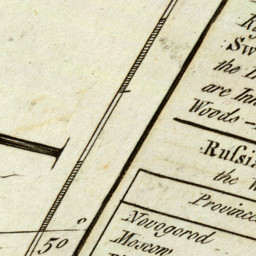 Sw
the
are In
Woods
Russi
the W
Province
Novogorod
Moscow
50